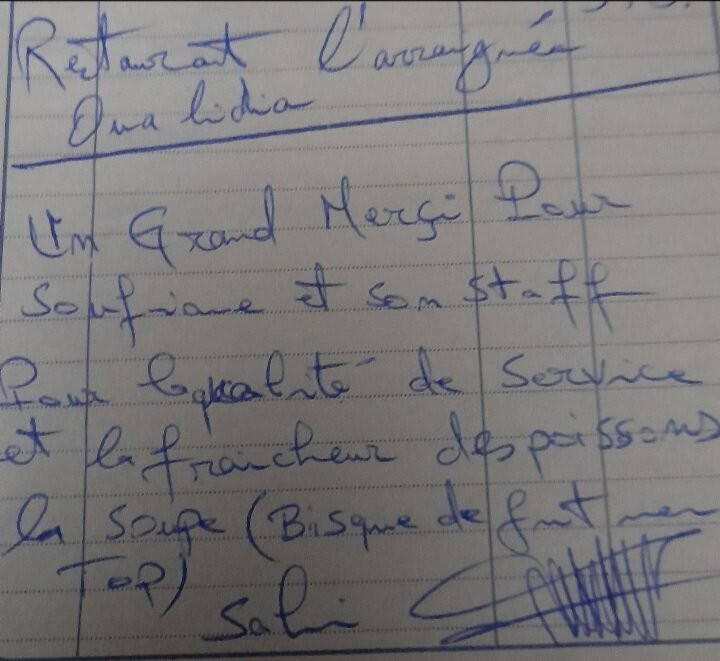 Restaurant l'arraignée
Oualidia
Un Grand Merçi Pour
Soufiane et son staff
Pour la qualité de Service
et la fraicheur des poissons
la soupe (Bisque de fruit mer
TOP)